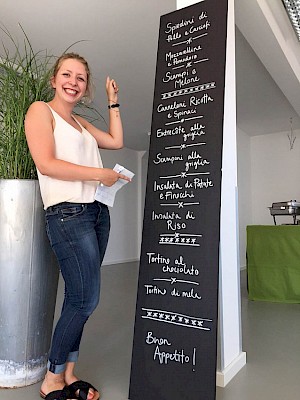 Spiedini di
Pollo e Carciofi
Mozzarelline
e Pomodoro
Scampi e
Melone
Canneloni Ricotta
e Spinaci
Entrecôte alla
griglia
Scampini alla
griglia
Insalata di Patate
e Finocchi
Insalata di
Riso
Tortino al
chocolato
Tortino di mele
Buon
Appetito!